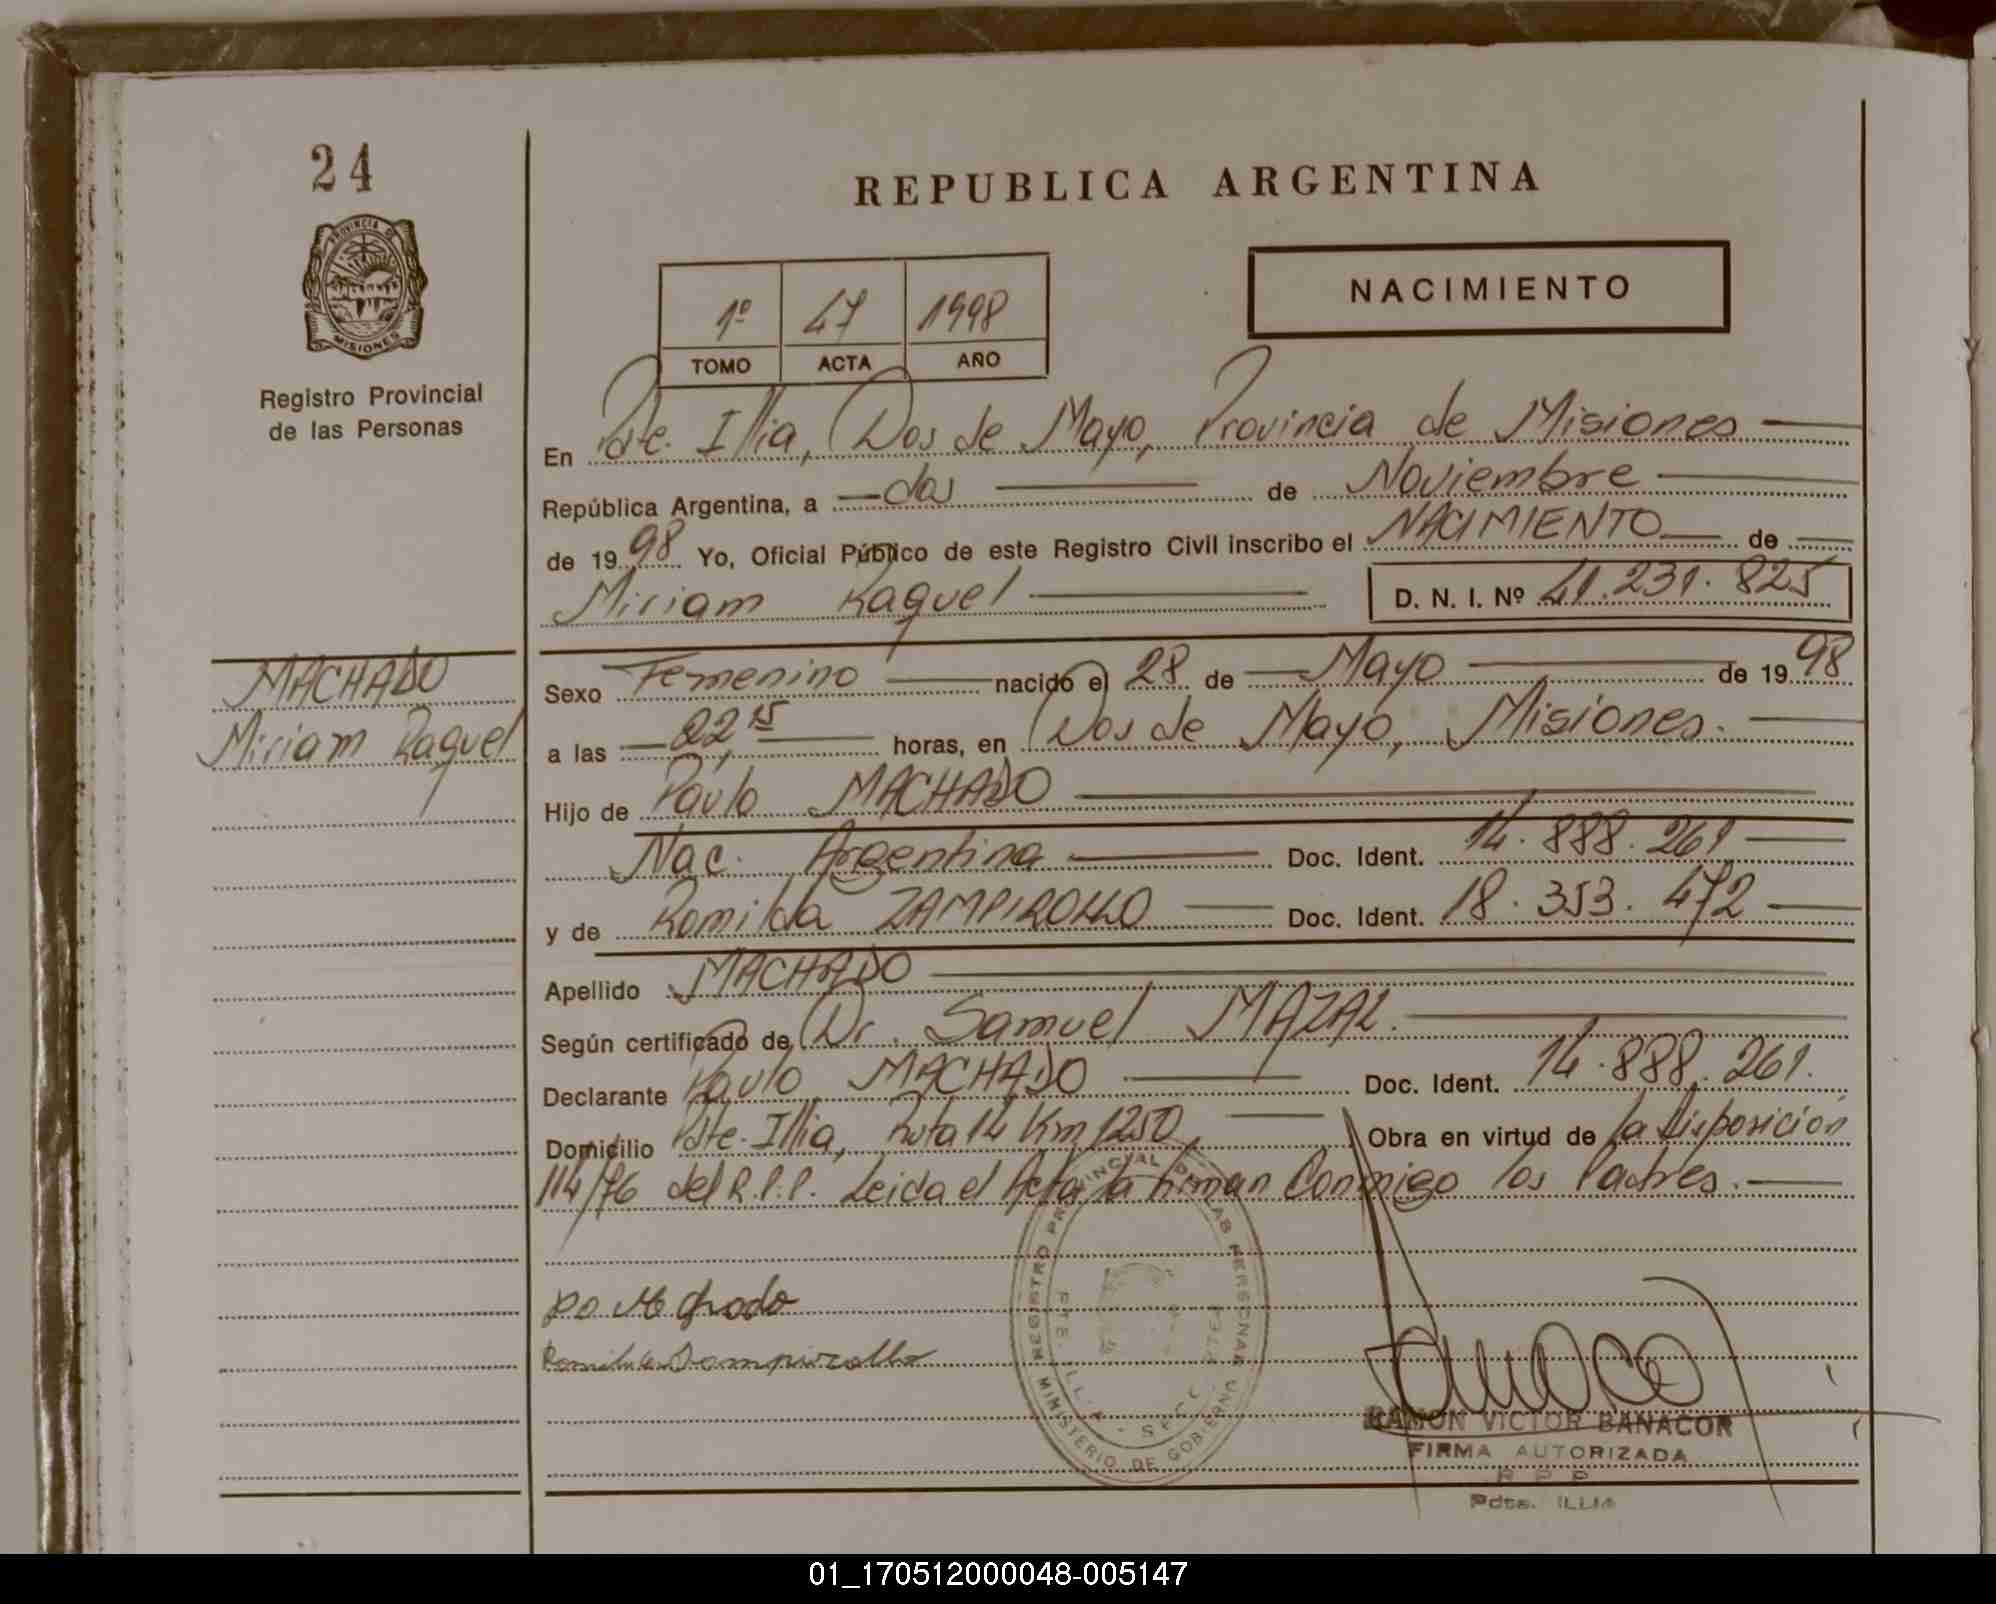 24
PROVINCIA DE
MISIONES
Registro Provincial
de las Personas
MACHADO
Miriam Raquel
REPUBLICA ARGENTINA
1º 47 1998
TOMO ACTA AÑO
NACIMIENTO
En Pdte. Illia, Dos de Mayo, Provincia de Misiones
República Argentina, a dos de Noviembre
de 1998 Yo, Oficial Público de este Registro Civil inscribo el NACIMIENTO de
Miriam Raquel D. N. I. Nº 41.231.825
Sexo Femenino nacido el 28 de Mayo de 1998
a las 22,15 horas, en Dos de Mayo, Misiones.
Hijo de Paulo MACHADO
Nac. Argentina Doc. Ident. 14.888.261
y de Romilda ZAMPIROLLO Doc. Ident. 18.353.472
Apellido MACHADO
Según certificado de Dr. Samuel MAZAL.
Declarante Paulo MACHADO Doc. Ident. 14.888.261.
Domicilio Pdte. Illia, Ruta 14 Km 1250, Obra en virtud de la Disposición
114/76 del R.P.P. Leida el Acta la firman Conmigo los Padres.
REGISTRO PROVINCIAL DE LAS PERSONAS
PTE. ILLIA - SECC.
MINISTERIO DE GOBIERNO
RAMON VICTOR BANACOR
FIRMA AUTORIZADA
R P P
Pdte. ILLIA
01_170512000048-005147